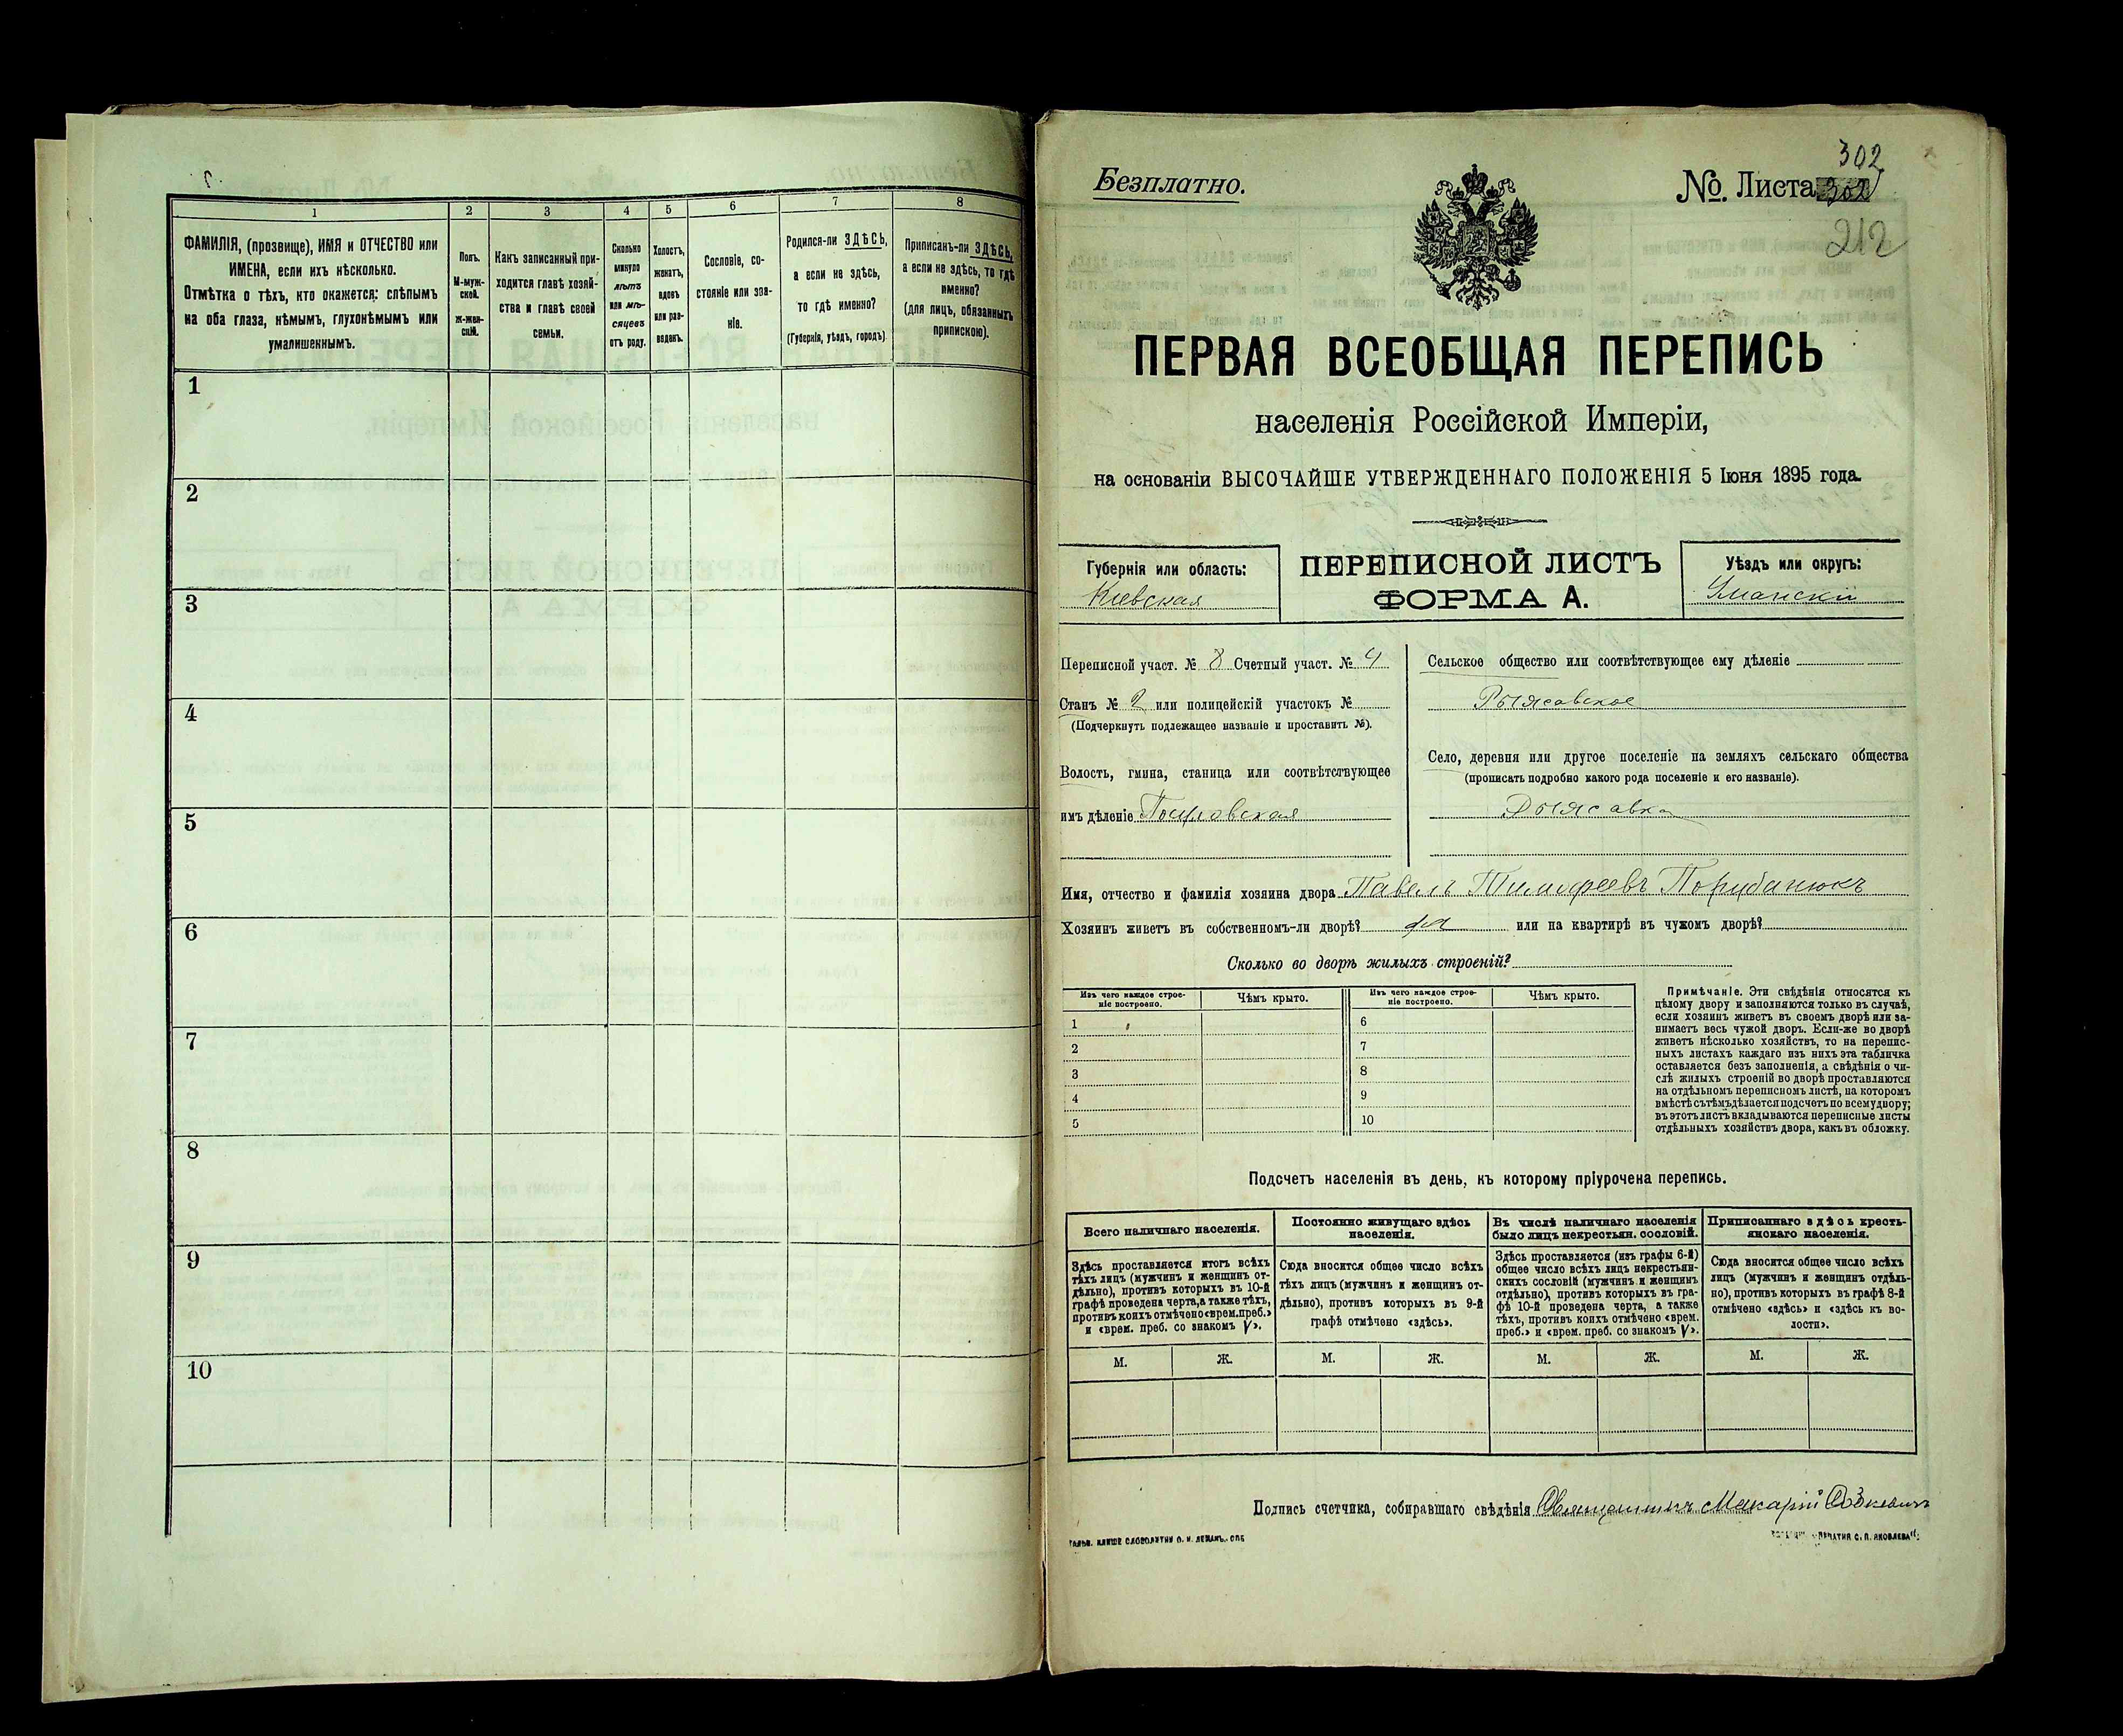 1
2
3
4
5
6
7
8
ФАМИЛІЯ, (прозвище), ИМЯ и ОТЧЕСТВО или
ИМЕНА, если ихъ нѣсколько.
Отмѣтка о тѣхъ, кто окажется: слѣпымъ
на оба глаза, нѣмымъ, глухонѣмымъ или
умалишеннымъ.
Полъ.
М-муж-
ской.
ж-жен-
скій.
Какъ записанный при-
ходится главѣ хозяй-
ства и главѣ своей
семьи.
Сколько
минуло
лѣтъ
или мѣ-
сяцевъ
отъ роду.
Холостъ,
женатъ,
вдовъ
или раз-
веденъ.
Сословіе, со-
стояніе или зва-
ніе.
Родился-ли ЗДѢСЬ,
а если не здѣсь,
то гдѣ именно?
(Губернія, уѣздъ, городъ)
Приписанъ-ли ЗДѢСЬ,
а если не здѣсь, то гдѣ
именно?
(для лицъ, обязанныхъ
припискою).
1
2
3
4
5
6
7
8
9
10
302
Безплатно.
№. Листа 302
212
ПЕРВАЯ ВСЕОБЩАЯ ПЕРЕПИСЬ
населенія Россійской Имперіи,
на основаніи ВЫСОЧАЙШЕ УТВЕРЖДЕННАГО ПОЛОЖЕНІЯ 5 Іюня 1895 года.
Губернія или область:
Кіевская
ПЕРЕПИСНОЙ ЛИСТЪ
ФОРМА А.
Уѣздъ или округъ:
Уманскій
Переписной участ. № 8 Счетный участ. № 4
Станъ № 2 или полицейскій участокъ №
(Подчеркнуть подлежащее названіе и проставить №).
Волость, гмина, станица или соотвѣтствующее
имъ дѣленіе
Сельское общество или соотвѣтствующее ему дѣленіе
Село, деревня или другое поселеніе на земляхъ сельскаго общества
(прописать подробно какого рода поселеніе и его названіе).
Имя, отчество и фамилія хозяина двора Павелъ Тимофеевъ Порубанюкъ
Хозяинъ живетъ въ собственномъ-ли дворѣ? да или на квартирѣ въ чужомъ дворѣ?
Сколько во дворѣ жилыхъ строеній?
Изъ чего каждое строе-
ніе построено.
Чѣмъ крыто.
Изъ чего каждое строе-
ніе построено.
Чѣмъ крыто.
1
2
3
4
5
6
7
8
9
10
Примѣчаніе. Эти свѣдѣнія относятся къ
цѣлому двору и заполняются только въ случаѣ,
если хозяинъ живетъ въ своемъ дворѣ или за-
нимаетъ весь чужой дворъ. Если-же во дворѣ
живетъ нѣсколько хозяйствъ, то на перепис-
ныхъ листахъ каждаго изъ нихъ эта табличка
оставляется безъ заполненія, а свѣдѣнія о чи-
слѣ жилыхъ строеній во дворѣ проставляются
на отдѣльномъ переписномъ листѣ, на которомъ
вмѣстѣ съ тѣмъ дѣлается подсчетъ по всему двору;
въ этотъ листъ вкладываются переписные листы
отдѣльныхъ хозяйствъ двора, какъ въ обложку.
Подсчетъ населенія въ день, къ которому пріурочена перепись.
Всего наличнаго населенія.
Постоянно живущаго здѣсь
населенія.
Въ числѣ наличнаго населенія
было лицъ некрестьян. сословій.
Приписаннаго здѣсь кресть-
янскаго населенія.
Здѣсь проставляется итогъ всѣхъ
тѣхъ лицъ (мужчинъ и женщинъ от-
дѣльно), противъ которыхъ въ 10-й
графѣ проведена черта, а также тѣхъ,
противъ коихъ отмѣчено «врем. преб.»
и «врем. преб. со знакомъ V».
Сюда вносится общее число всѣхъ
тѣхъ лицъ (мужчинъ и женщинъ от-
дѣльно), противъ которыхъ въ 9-й
графѣ отмѣчено «здѣсь».
Здѣсь проставляется (изъ графы 6-й)
общее число всѣхъ лицъ некрестьян-
скихъ сословій (мужчинъ и женщинъ
отдѣльно), противъ которыхъ въ гра-
фѣ 10-й проведена черта, а также
тѣхъ, противъ коихъ отмѣчено «врем.
преб.» и «врем. преб. со знакомъ V».
Сюда вносится общее число всѣхъ
лицъ (мужчинъ и женщинъ отдѣль-
но), противъ которыхъ въ графѣ 8-й
отмѣчено «здѣсь» и «здѣсь къ во-
лости».
М.
Ж.
М.
Ж.
М.
Ж.
М.
Ж.
Подпись счетчика, собиравшаго свѣдѣнія Священникъ Макарій